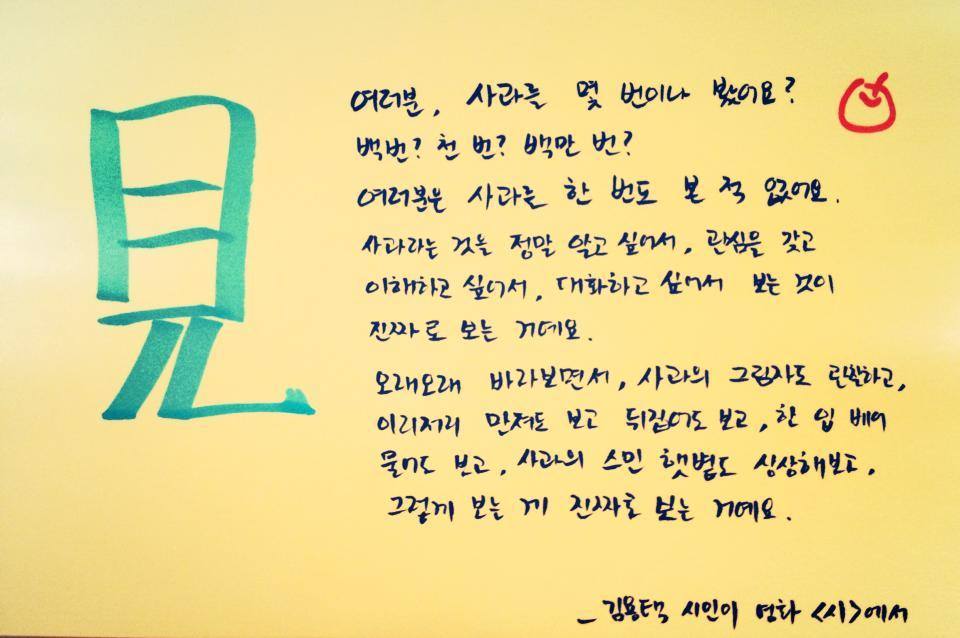 見
여러분, 사과를 몇 번이나 봤어요?
백번? 천 번? 백만 번?
여러분은 사과를 한 번도 본 적 없어요.
사과라는 것을 정말 알고 싶어서, 관심을 갖고
이해하고 싶어서, 대화하고 싶어서 보는 것이
진짜로 보는 거예요.
오래오래 바라보면서, 사과의 그림자도 관찰하고,
이리저리 만져도 보고 뒤집어도 보고, 한 입 베어
물어도 보고, 사과의 스민 햇볕도 상상해보고,
그렇게 보는 게 진짜로 보는 거예요.
_김용택 시인이 영화 <시>에서